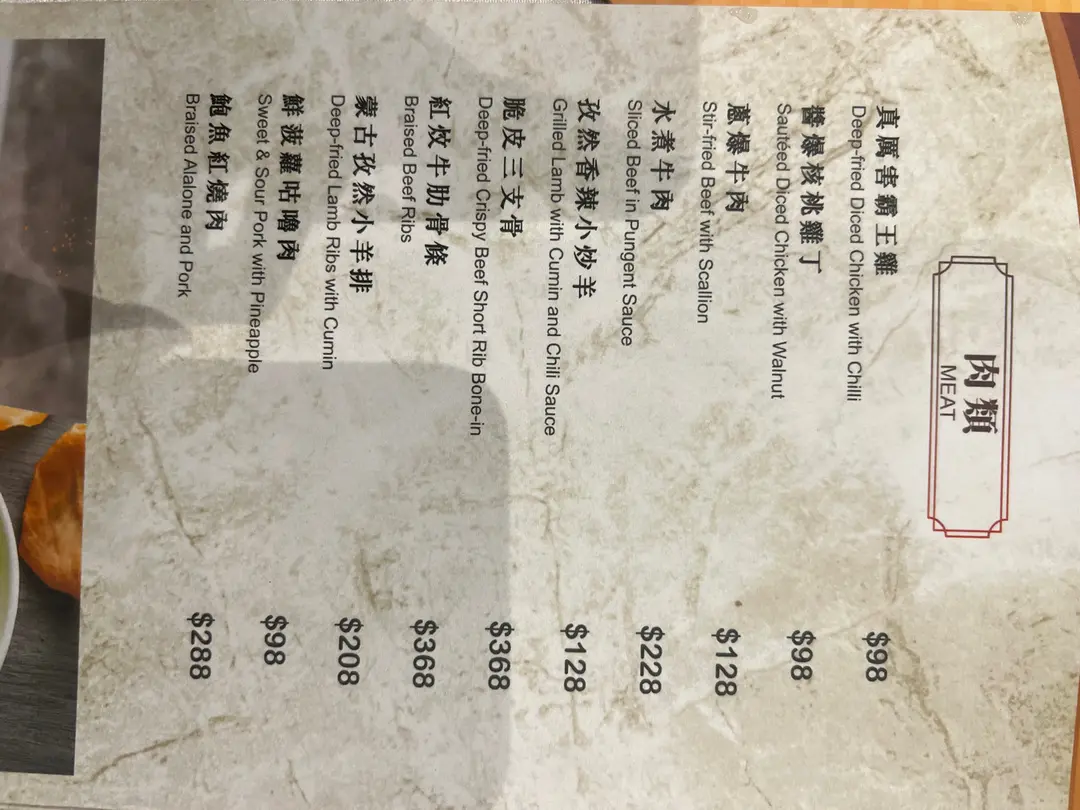 肉類
MEAT
真厲害霸王雞
Deep-fried Diced Chicken with Chilli
$98
醬爆核桃雞丁
Sautéed Diced Chicken with Walnut
$98
蔥爆牛肉
Stir-fried Beef with Scallion
$128
水煮牛肉
Sliced Beef in Pungent Sauce
$228
孜然香辣小炒羊
Grilled Lamb with Cumin and Chili Sauce
$128
脆皮三支骨
Deep-fried Crispy Beef Short Rib Bone-in
$368
紅炆牛肋骨條
Braised Beef Ribs
$368
蒙古孜然小羊排
Deep-fried Lamb Ribs with Cumin
$208
鮮菠蘿咕嚕肉
Sweet & Sour Pork with Pineapple
$98
鮑魚紅燒肉
Braised Alalone and Pork
$288